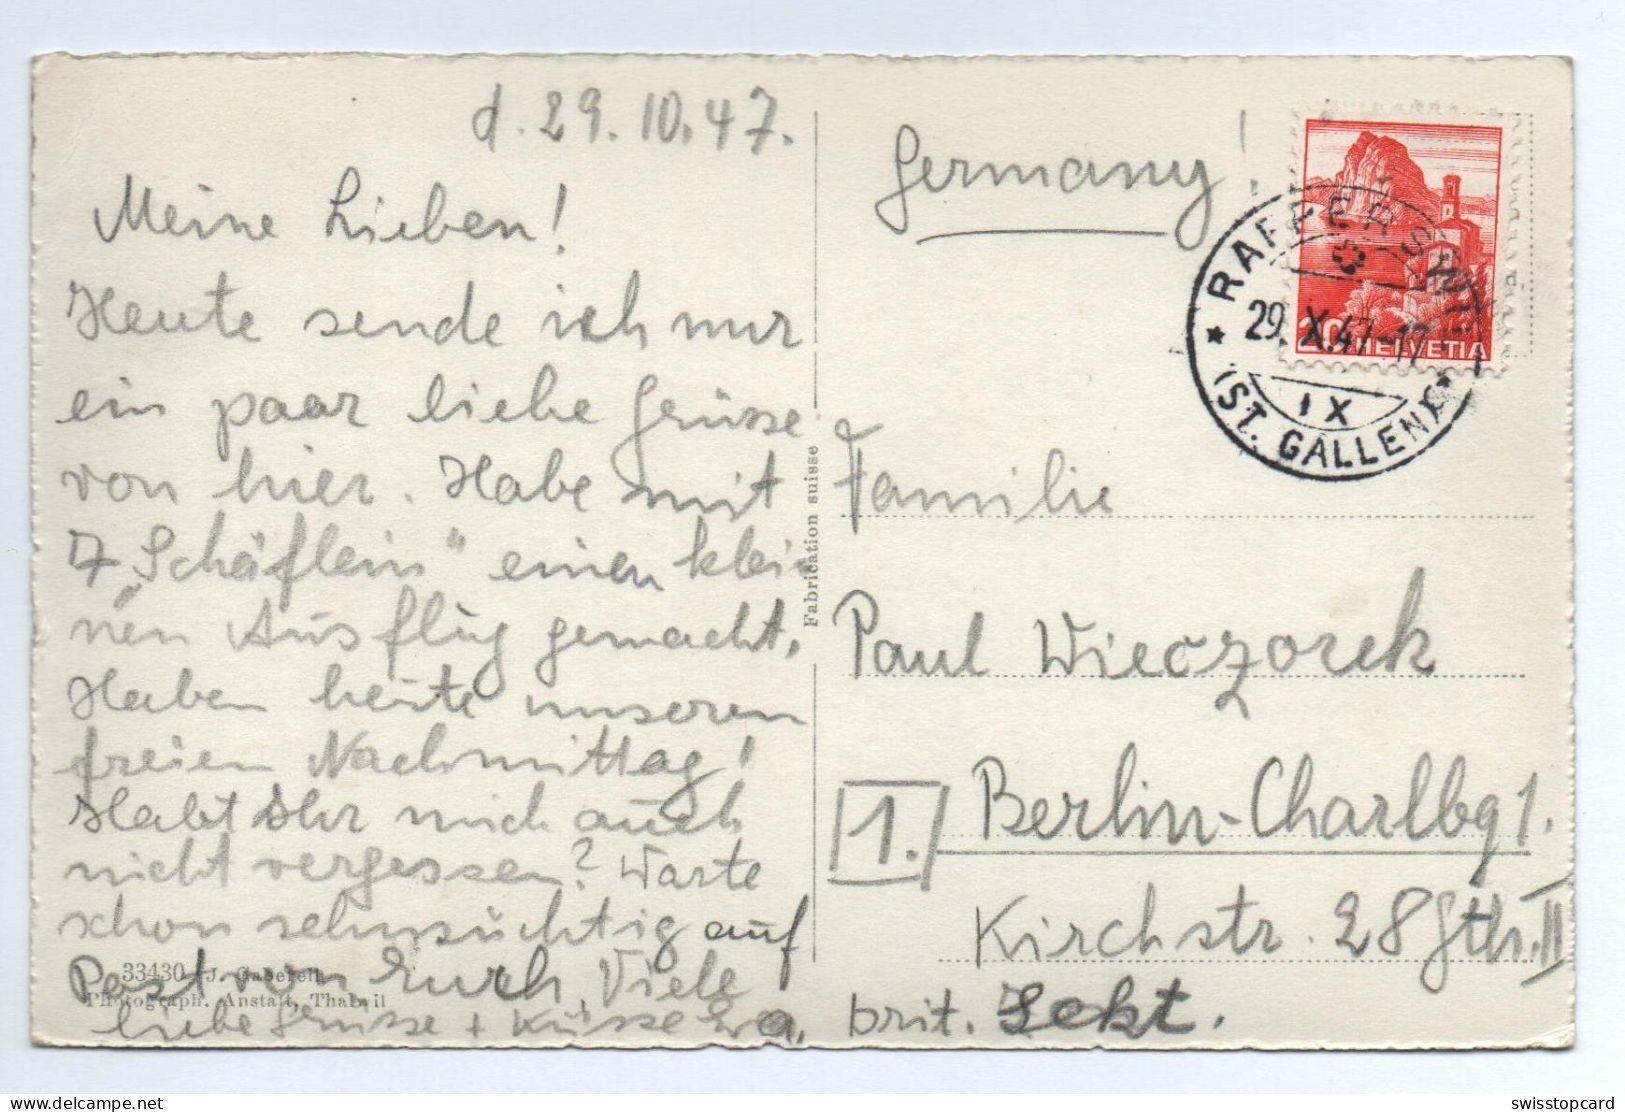 d. 29.10.47.
Meine Lieben!
Heute sende ich nur
ein paar liebe Grüsse
von hier. Habe mit
7 „Schäflein" einen klei
nen Ausflug gemacht.
Haben heute unseren
freien Nachmittag!
Habt Ihr mich auch
nicht vergessen? Warte
schon sehnsüchtig auf
Post von Euch. Viele
liebe Grüsse + Küsse Eva.
33430 J. Gaberell
Photograph. Anstalt, Thalwil
Fabrication suisse
Germany!
RAPPERSWIL
29.X.47-17
IX
(ST. GALLEN)
20 HELVETIA
Familie
Paul Wieczorek
1. Berlin-Charlbg 1.
Kirchstr. 28 Gth. II
brit. Sekt.
swisstopcard